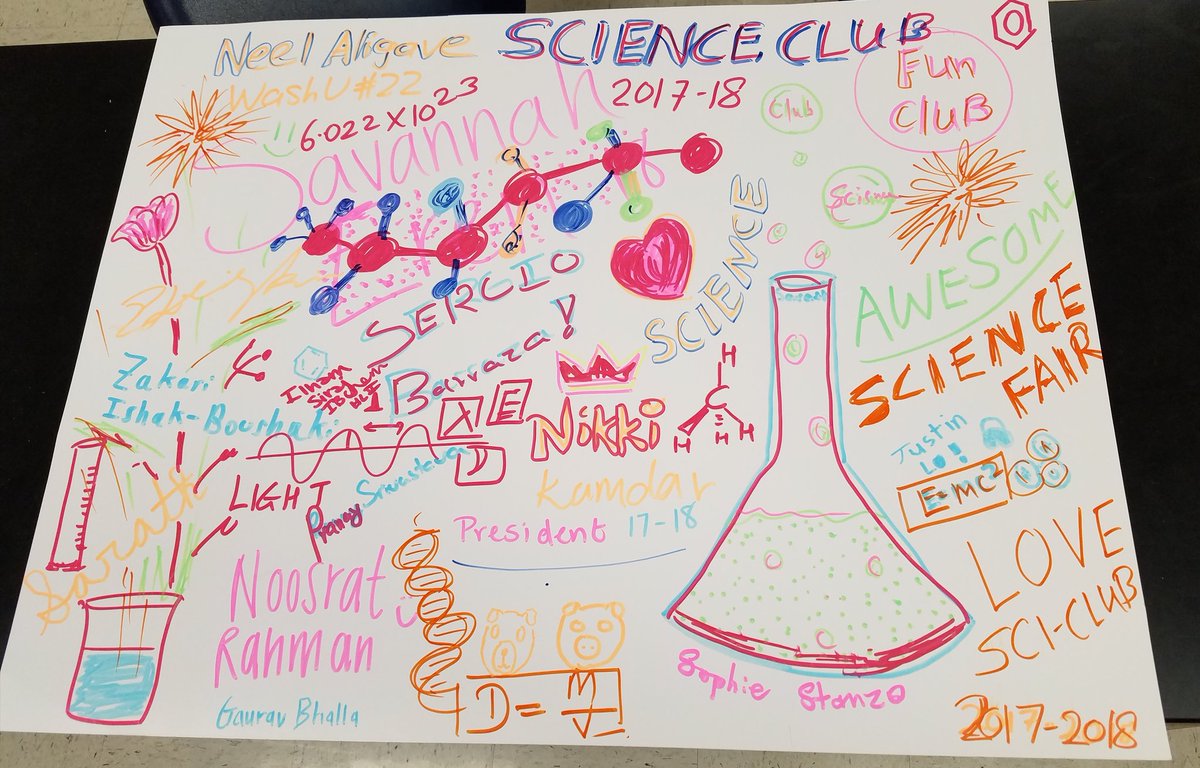 Neel Aligave
SCIENCE CLUB
WashU #22
6.022 X 10 23
2017-18
Savannah
Club
Fun
CLUB
Science
SCIENCE
AWESOME
SERGIO
Barraza!
SCIENCE
FAIR
Zakari
Ishak-Boushaki
XE
D
LIGHT
Pranay Srivastava
Nikki
Kamdar
President 17-18
H
C
H H H
Justin
Lo!
E=mc2
Sarath
Noosrat
Rahman
Gaurav Bhalla
D = M
V
Sophie Stanzo
LOVE
SCI-CLUB
2017-2018